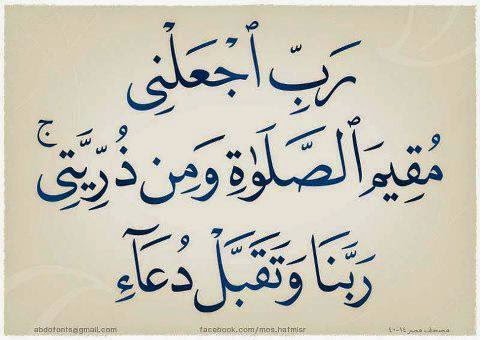 رَبِّ ٱجْعَلْنِى
مُقِيمَ ٱلصَّلَوٰةِ وَمِن ذُرِّيَّتِى ۚ
رَبَّنَا وَتَقَبَّلْ دُعَآءِ
abdofonts@gmail.com facebook.com/mos.hafmisr مصحف مصر ١٤-٤٠